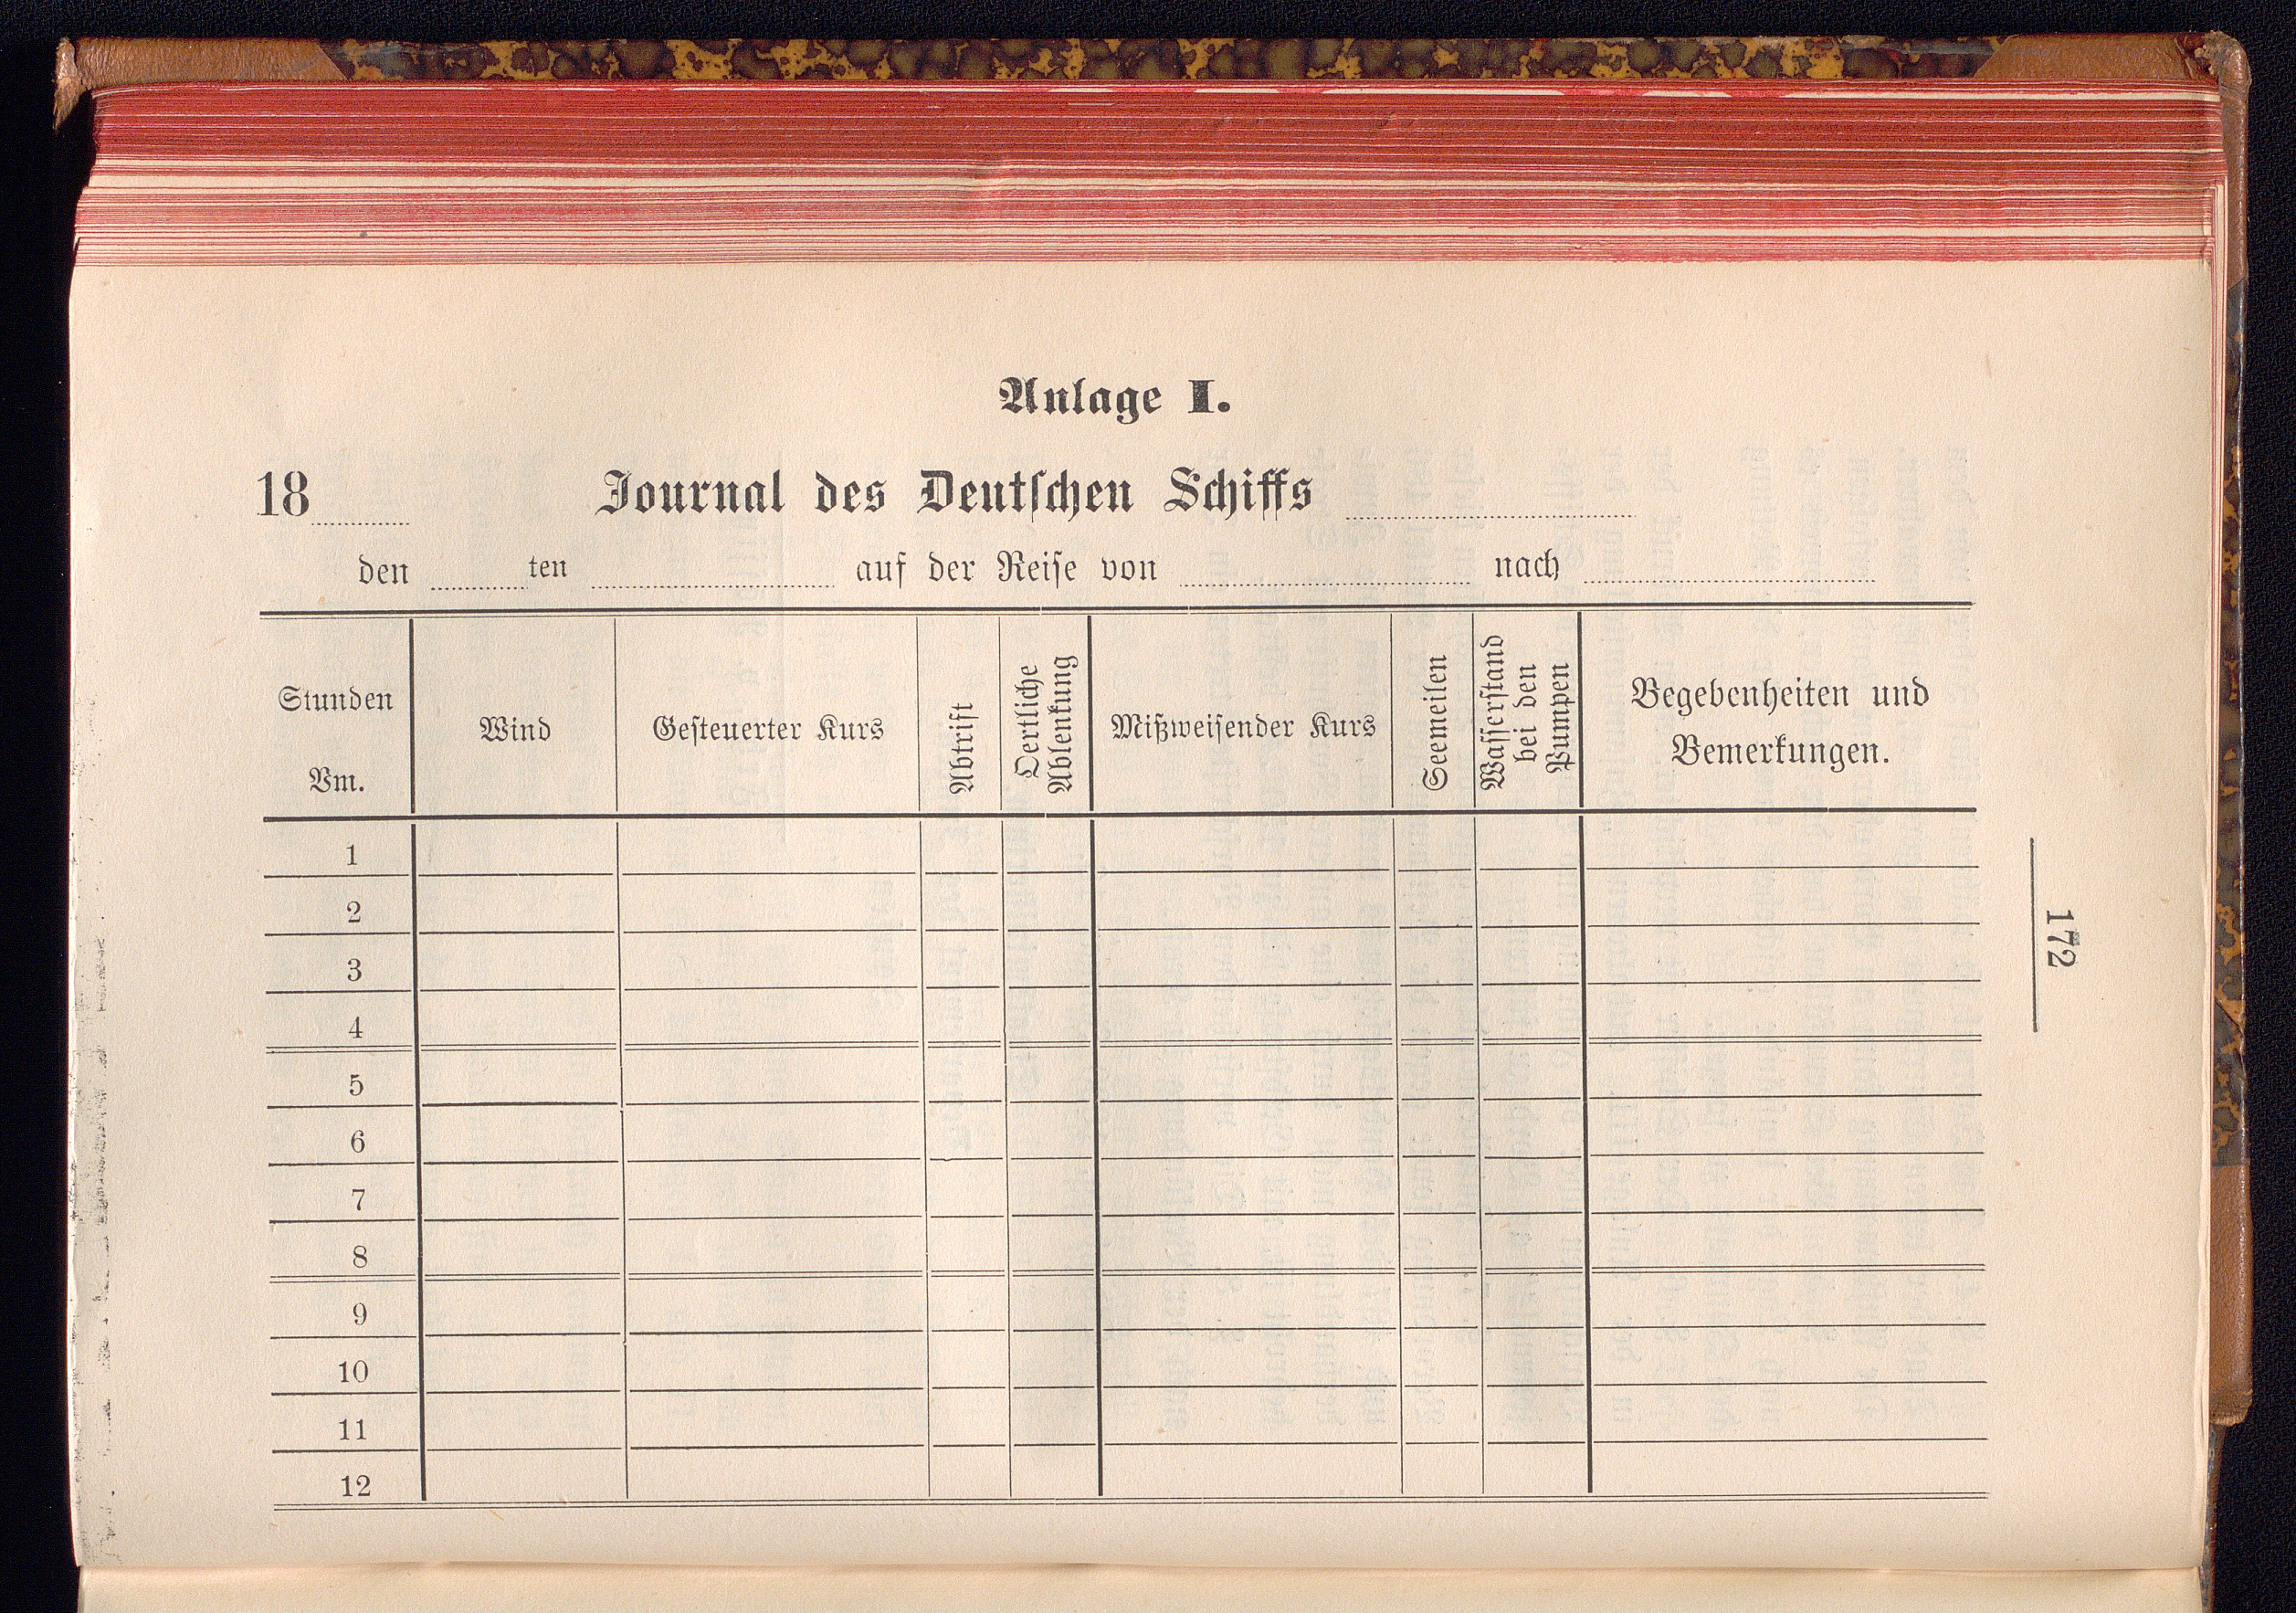 Anlage I.
18 Journal des Deutſchen Schiffs
den ten auf der Reiſe von nach
Stunden
Vm.
Wind
Geſteuerter Kurs
Abtrift
Oertliche
Ablenkung
Mißweiſender Kurs
Seemeilen
Waſſerſtand
bei den
Pumpen
Begebenheiten und
Bemerkungen.
1
2
3
4
5
6
7
8
9
10
11
12
172